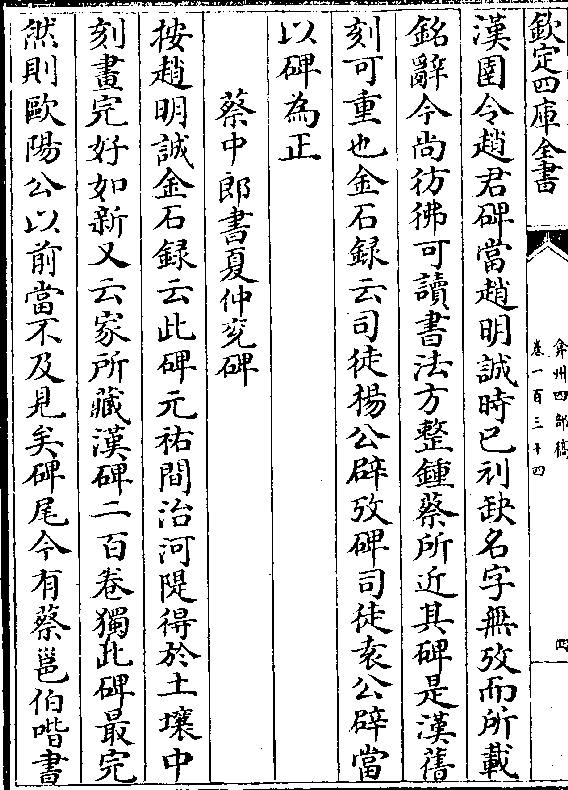 欽定四庫全書
弇州四部稿
卷一百三十四
四
漢圉令趙君碑當趙明誠時已刓缺名字無攷而所載
銘辭今尚彷彿可讀書法方整鍾蔡所近其碑是漢舊
刻可重也金石録云司徒楊公辟攷碑司徒袁公辟當
以碑為正
蔡中郎書夏仲兖碑
按趙明誠金石録云此碑元祐間治河隄得於土壤中
刻畫完好如新又云家所藏漢碑二百卷獨此碑最完
然則歐陽公以前當不及見矣碑尾今有蔡邕伯喈書